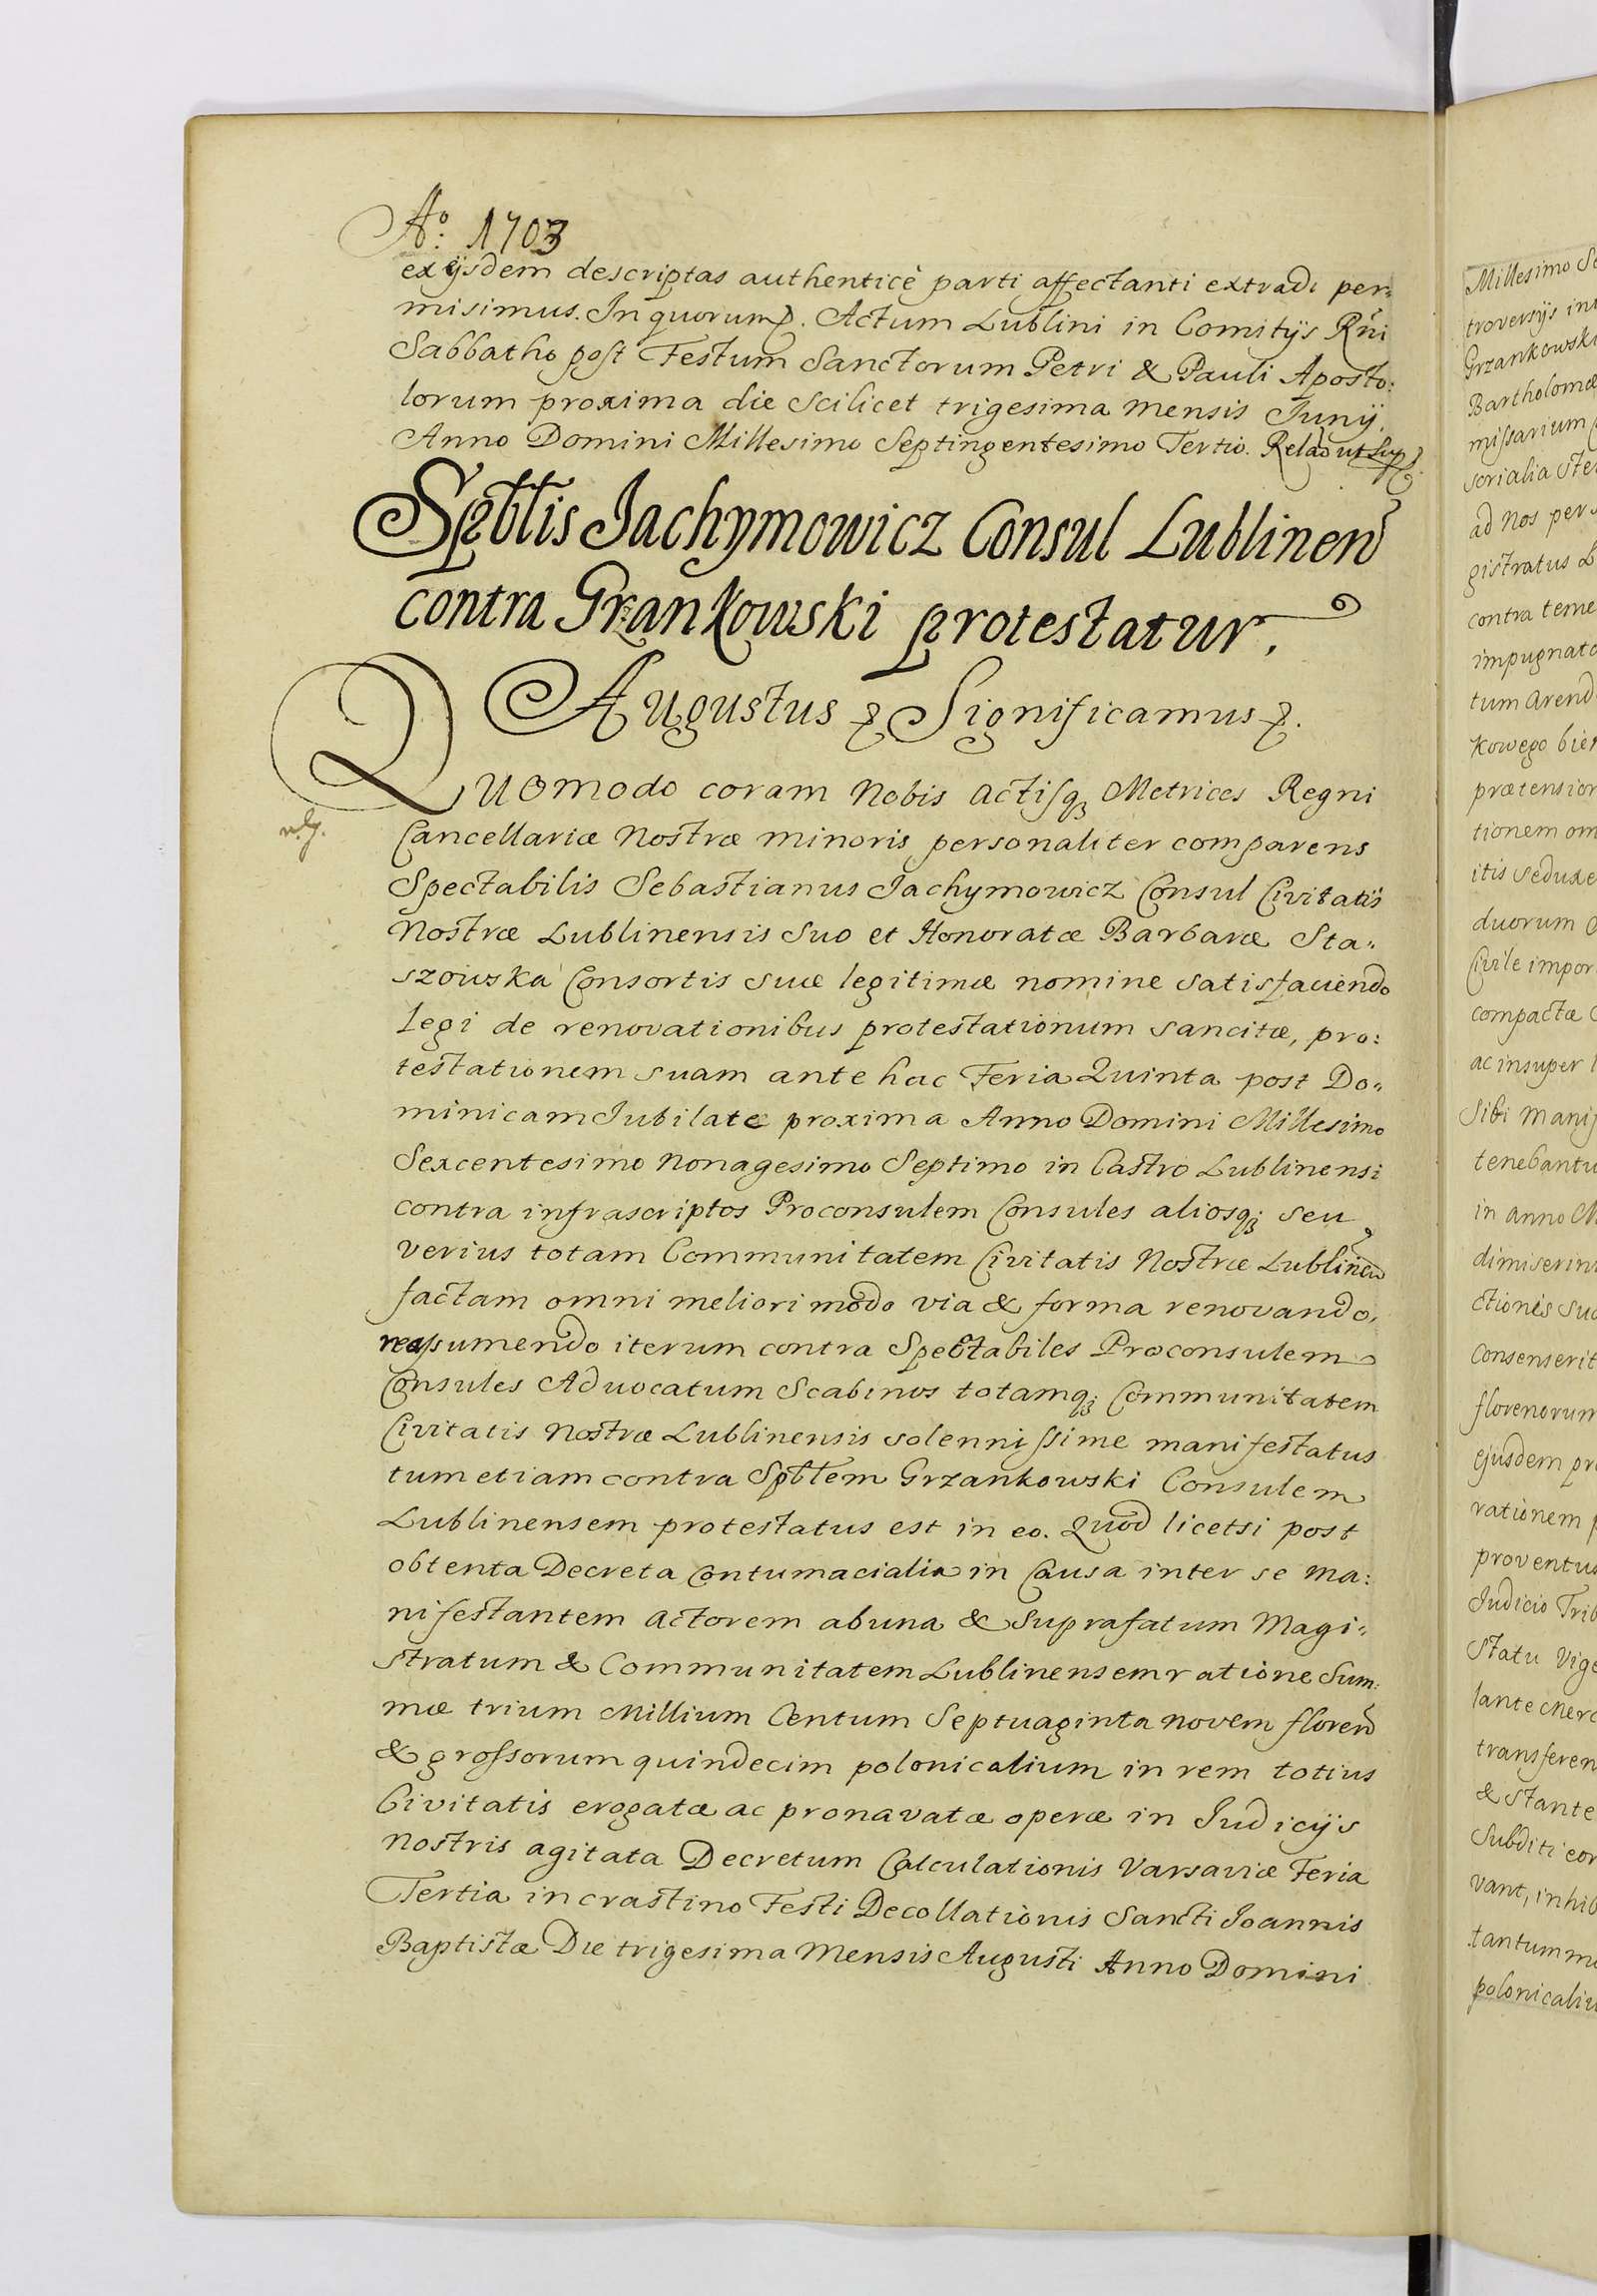 Aº: 1703
ex ijsdem descriptas authenticè parti affectanti extradi per=
misimus. In quorum. Actum Lublini in Comitijs Rñi
Sabbatho post Festum Sanctorum Petri & Pauli Aposto:
lorum proxima die scilicet trigesima mensis Junij.
Anno Domini Millesimo Septingentesimo Tertio. Relaõ ut Sup
Spbtlis Jachymowicz Consul Lublinen
contra Grzankowski protestatur.
Augustus & Significamus &.
Quomodo coram Nobis Actisq; Metrices Regni
Cancellariæ Nostræ minoris personaliter comparens
Spectabilis Sebastianus Jachymowicz Consul Civitatis
Nostræ Lublinensis Suo et Honoratæ Barbaræ Sta=
szowska Consortis suæ legitimæ nomine satisfaciendo
Legi de renovationibus protestationum sancitæ, pro:
testationem suam ante hac Feria Quinta post Do=
minicam Jubilate proxima Anno Domini Millesimo
Sexcentesimo Nonagesimo Septimo in Castro Lublinensi
contra infrascriptos Proconsulem Consules aliosq; seu
verius totam Communitatem Civitatis Nostræ Lublinen
factam omni meliori modo via & forma renovando,
reassumendo iterum contra Spectabiles Proconsulem
Consules Advocatum Scabinos totamq; Communitatem
Civitatis Nostræ Lublinensis solennissime manifestatus
tum etiam contra Spbtlem Grzankowski Consulem
Lublinensem protestatus est in eo. Quod licet si post
obtenta Decreta Contumacialia in Causa inter se Ma:
nifestantem Actorem ab una & suprafatum Magi=
stratum & Communitatem Lublinensem ratione Sum:
mæ trium Millium Centum Septuaginta Novem floren
& grossorum quindecim polonicalium in rem totius
Civitatis erogatæ ac pronavatæ operæ in Judicijs
Nostris agitata Decretum Calculationis Varsaviæ Feria
Tertia in crastino Festi Decollationis Sancti Joannis
Baptistæ Die trigesima Mensis Augusti Anno Domini
Millesimo
troversijs
Grzankowski
scrialia
ad Nos
gistratus
contra
kowego
tionem
duorum
Civile
compactæ
ac insuper
Sibi
in anno
ctionis
ejusdem
rationem
Judicio
Statu
& Stante
Subditi
vant,